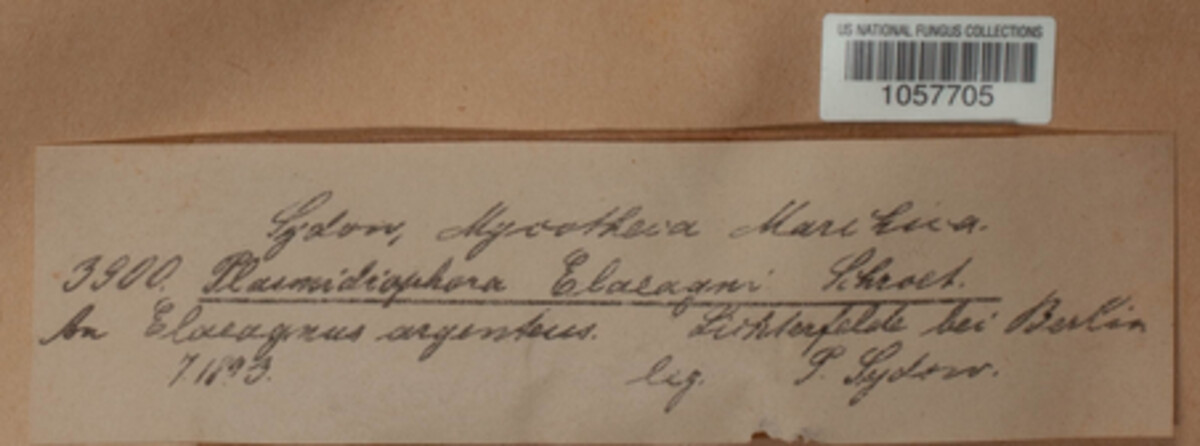 US NATIONAL FUNGUS COLLECTIONS
1057705
Sydow, Mycotheca Marchica.
3900. Plasmidiophora Elaeagni Schroet.
An Elaeagnus argenteus. Lichterfelde bei Berlin
7.1893. leg. P. Sydow.